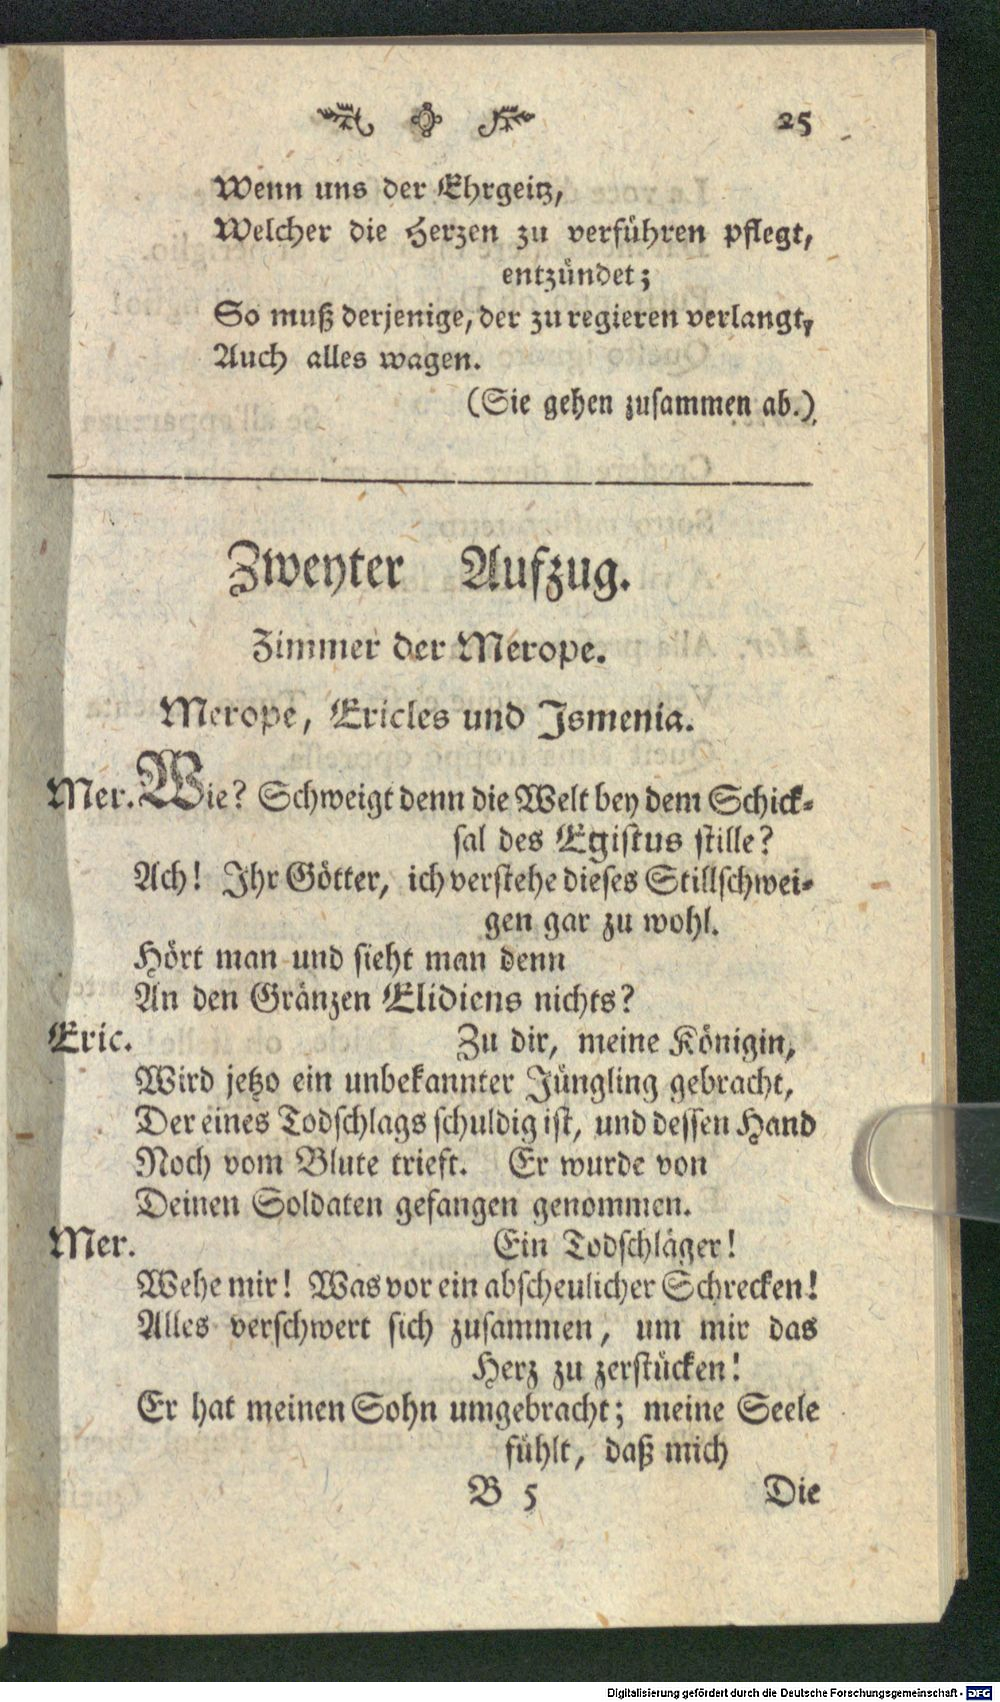 25
Wenn uns der Ehrgeitz,
Welcher die Herzen zu verführen pflegt,
entzündet;
So muß derjenige, der zu regieren verlangt,
Auch alles wagen.
(Sie gehen zusammen ab.)
Zweyter Aufzug.
Zimmer der Merope.
Merope, Ericles und Ismenia.
Mer. Wie? Schweigt denn die Welt bey dem Schick-
sal des Egistus stille?
Ach! Ihr Götter, ich verstehe dieses Stillschwei-
gen gar zu wohl.
Hört man und sieht man denn
An den Gränzen Elidiens nichts?
Eric. Zu dir, meine Königin,
Wird jetzo ein unbekannter Jüngling gebracht,
Der eines Todschlags schuldig ist, und dessen Hand
Noch vom Blute trieft. Er wurde von
Deinen Soldaten gefangen genommen.
Mer. Ein Todschläger!
Wehe mir! Was vor ein abscheulicher Schrecken!
Alles verschwert sich zusammen, um mir das
Herz zu zerstücken!
Er hat meinen Sohn umgebracht; meine Seele
fühlt, daß mich
B 5 Die
Digitalisierung gefördert durch die Deutsche Forschungsgemeinschaft - DFG